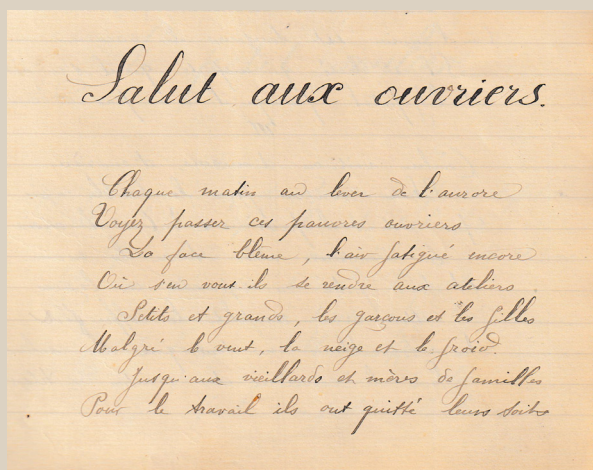 Salut aux ouvriers.
Chaque matin au lever de l'aurore
Voyez passer ces pauvres ouvriers
La face blême, l'air fatigué encore
Où s'en vont-ils se rendre aux ateliers.
Petits et grands, les garçons et les filles
Malgré le vent, la neige et le froid.
Jusqu'aux vieillards et mères de familles
Pour le travail ils ont quitté leurs toits